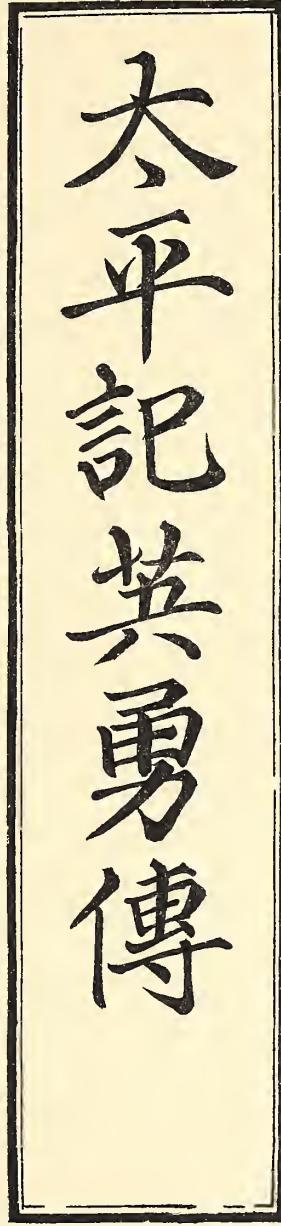 太平記英勇傳